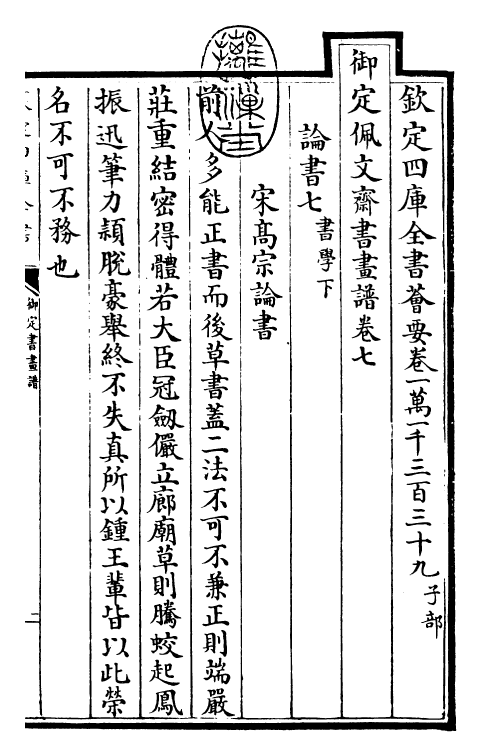 欽定四庫全書薈要卷一萬一千三百三十九子部
御定佩文齋書畫譜卷七
論書七書學下
宋髙宗論書
前人多能正書而後草書蓋二法不可不兼正則端嚴
莊重結密得體若大臣冠劔儼立廊廟草則騰蛟起鳳
振迅筆力穎脫豪舉終不失真所以鍾王輩皆以此榮
名不可不務也
御定書畫譜